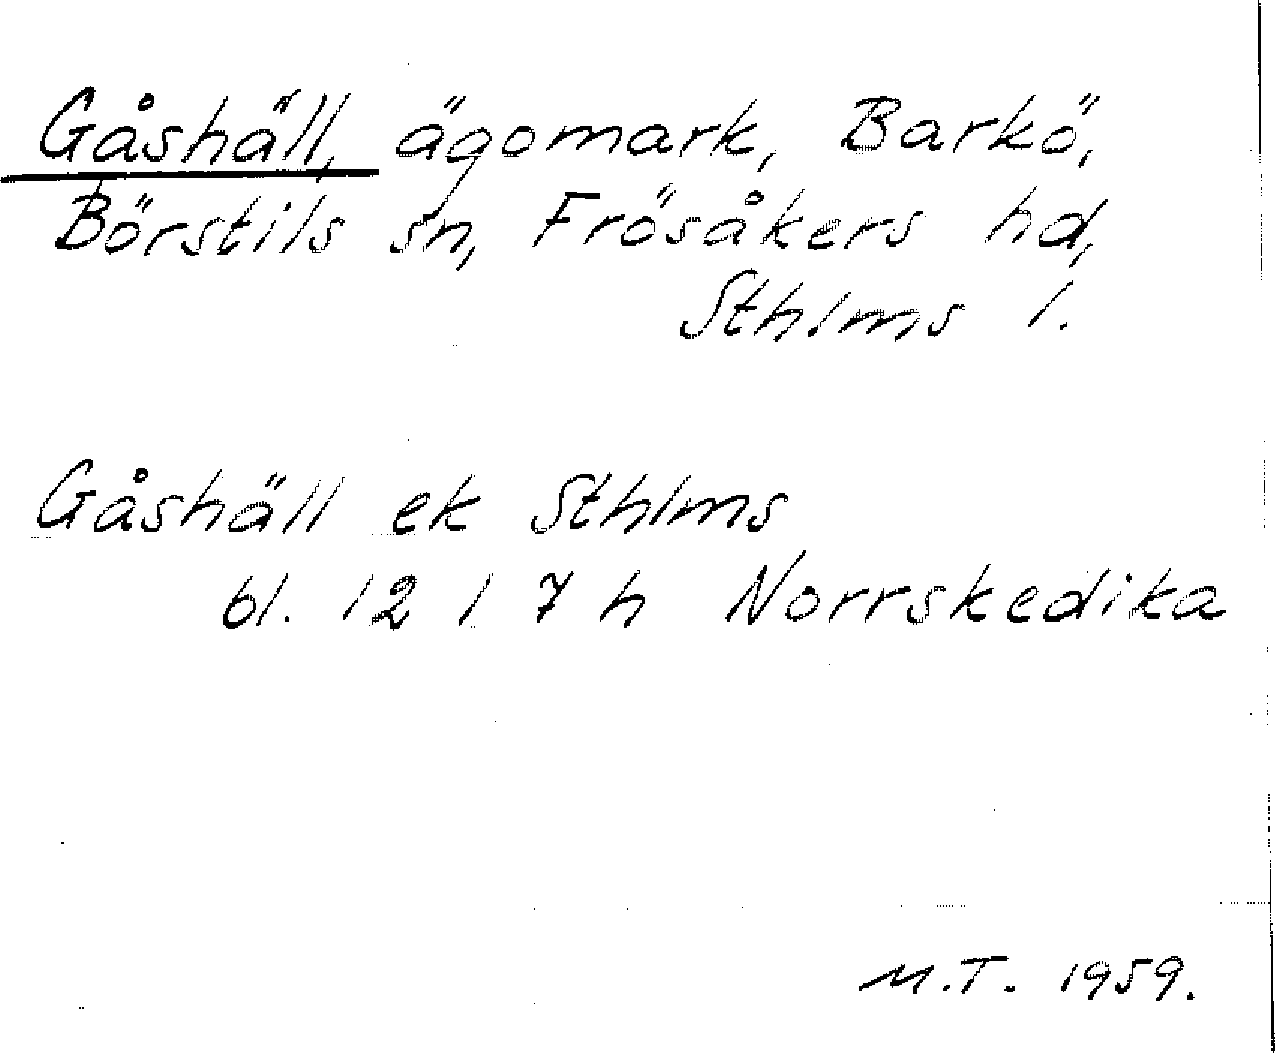 Gåshäll, ägomark, Barkö,
Börstils sn, Frösåkers hd,
Sthlms l.
Gåshäll ek Sthlms
bl. 12 I 7 h Norrskedika
M.T. 1959.